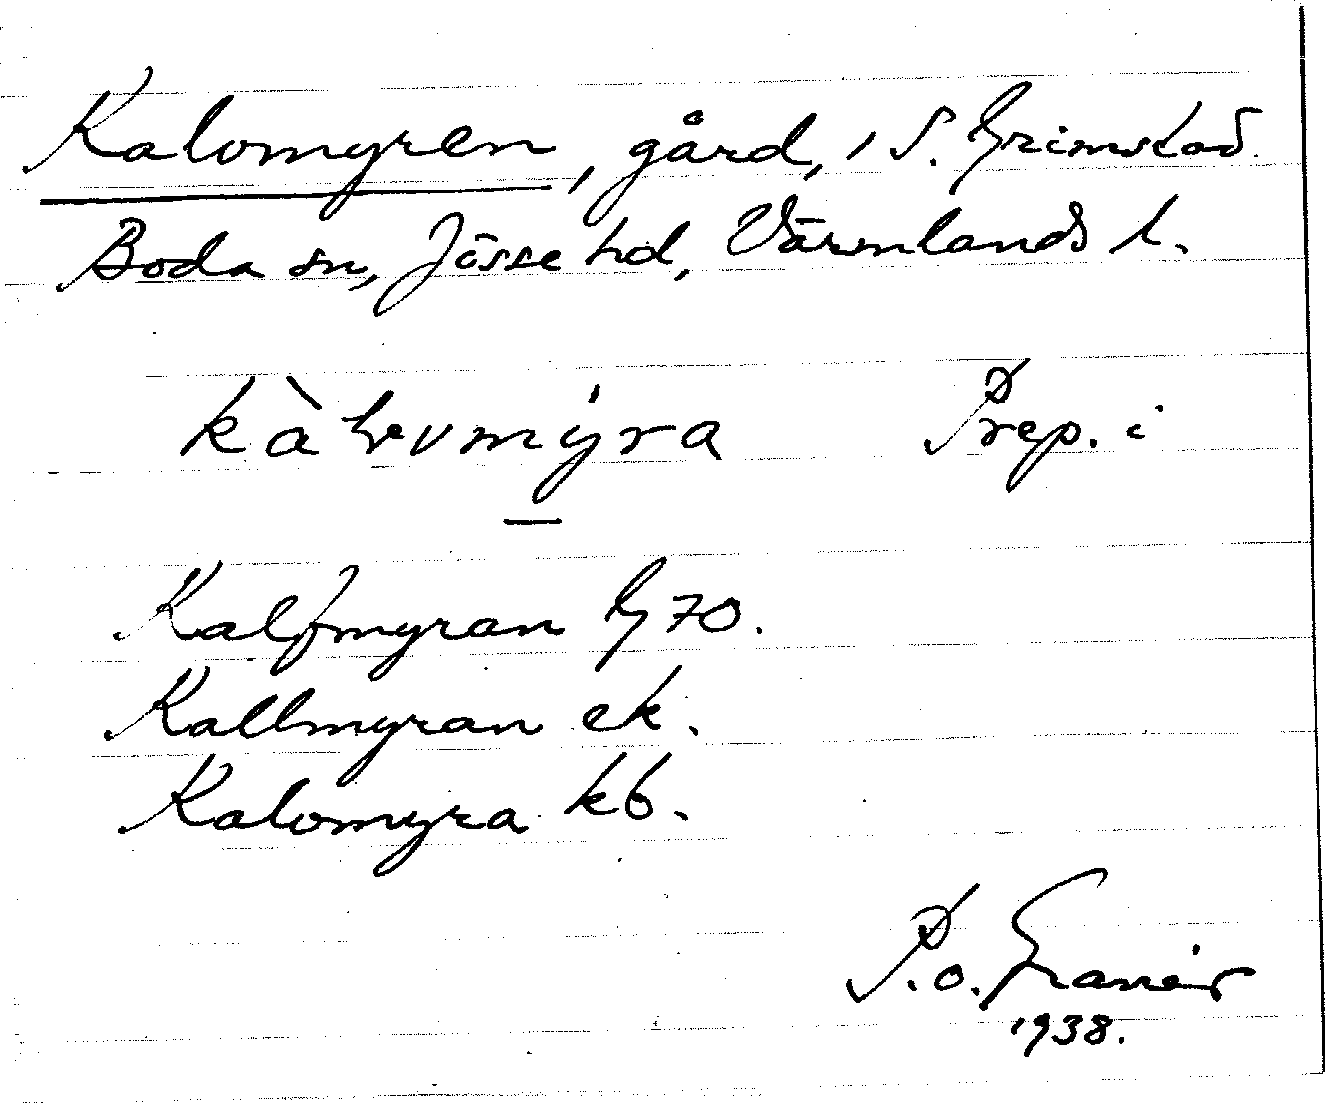 Kalomyren, gård, i S. Grimstad
Boda sn, Jösse hd, Värmlands l.
Prep. i
Kalfmyran G 70.
Kallmyran ek.
Kalomyra kb.
P.O. Granér
1938.